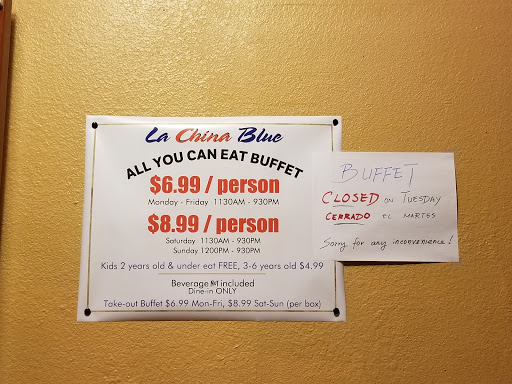 La China Blue
ALL YOU CAN EAT BUFFET
$6.99 / person
Monday - Friday 1130AM - 930PM
$8.99 / person
Saturday 1130AM - 930PM
Sunday 1200PM - 930PM
Kids 2 years old & under eat FREE, 3-6 years old $4.99
Beverage Not included
Dine-in ONLY
Take-out Buffet $6.99 Mon-Fri, $8.99 Sat-Sun (per box)
BUFFET
CLOSED ON TUESDAY
CERRADO EL MARTES
Sorry for any inconvenience!